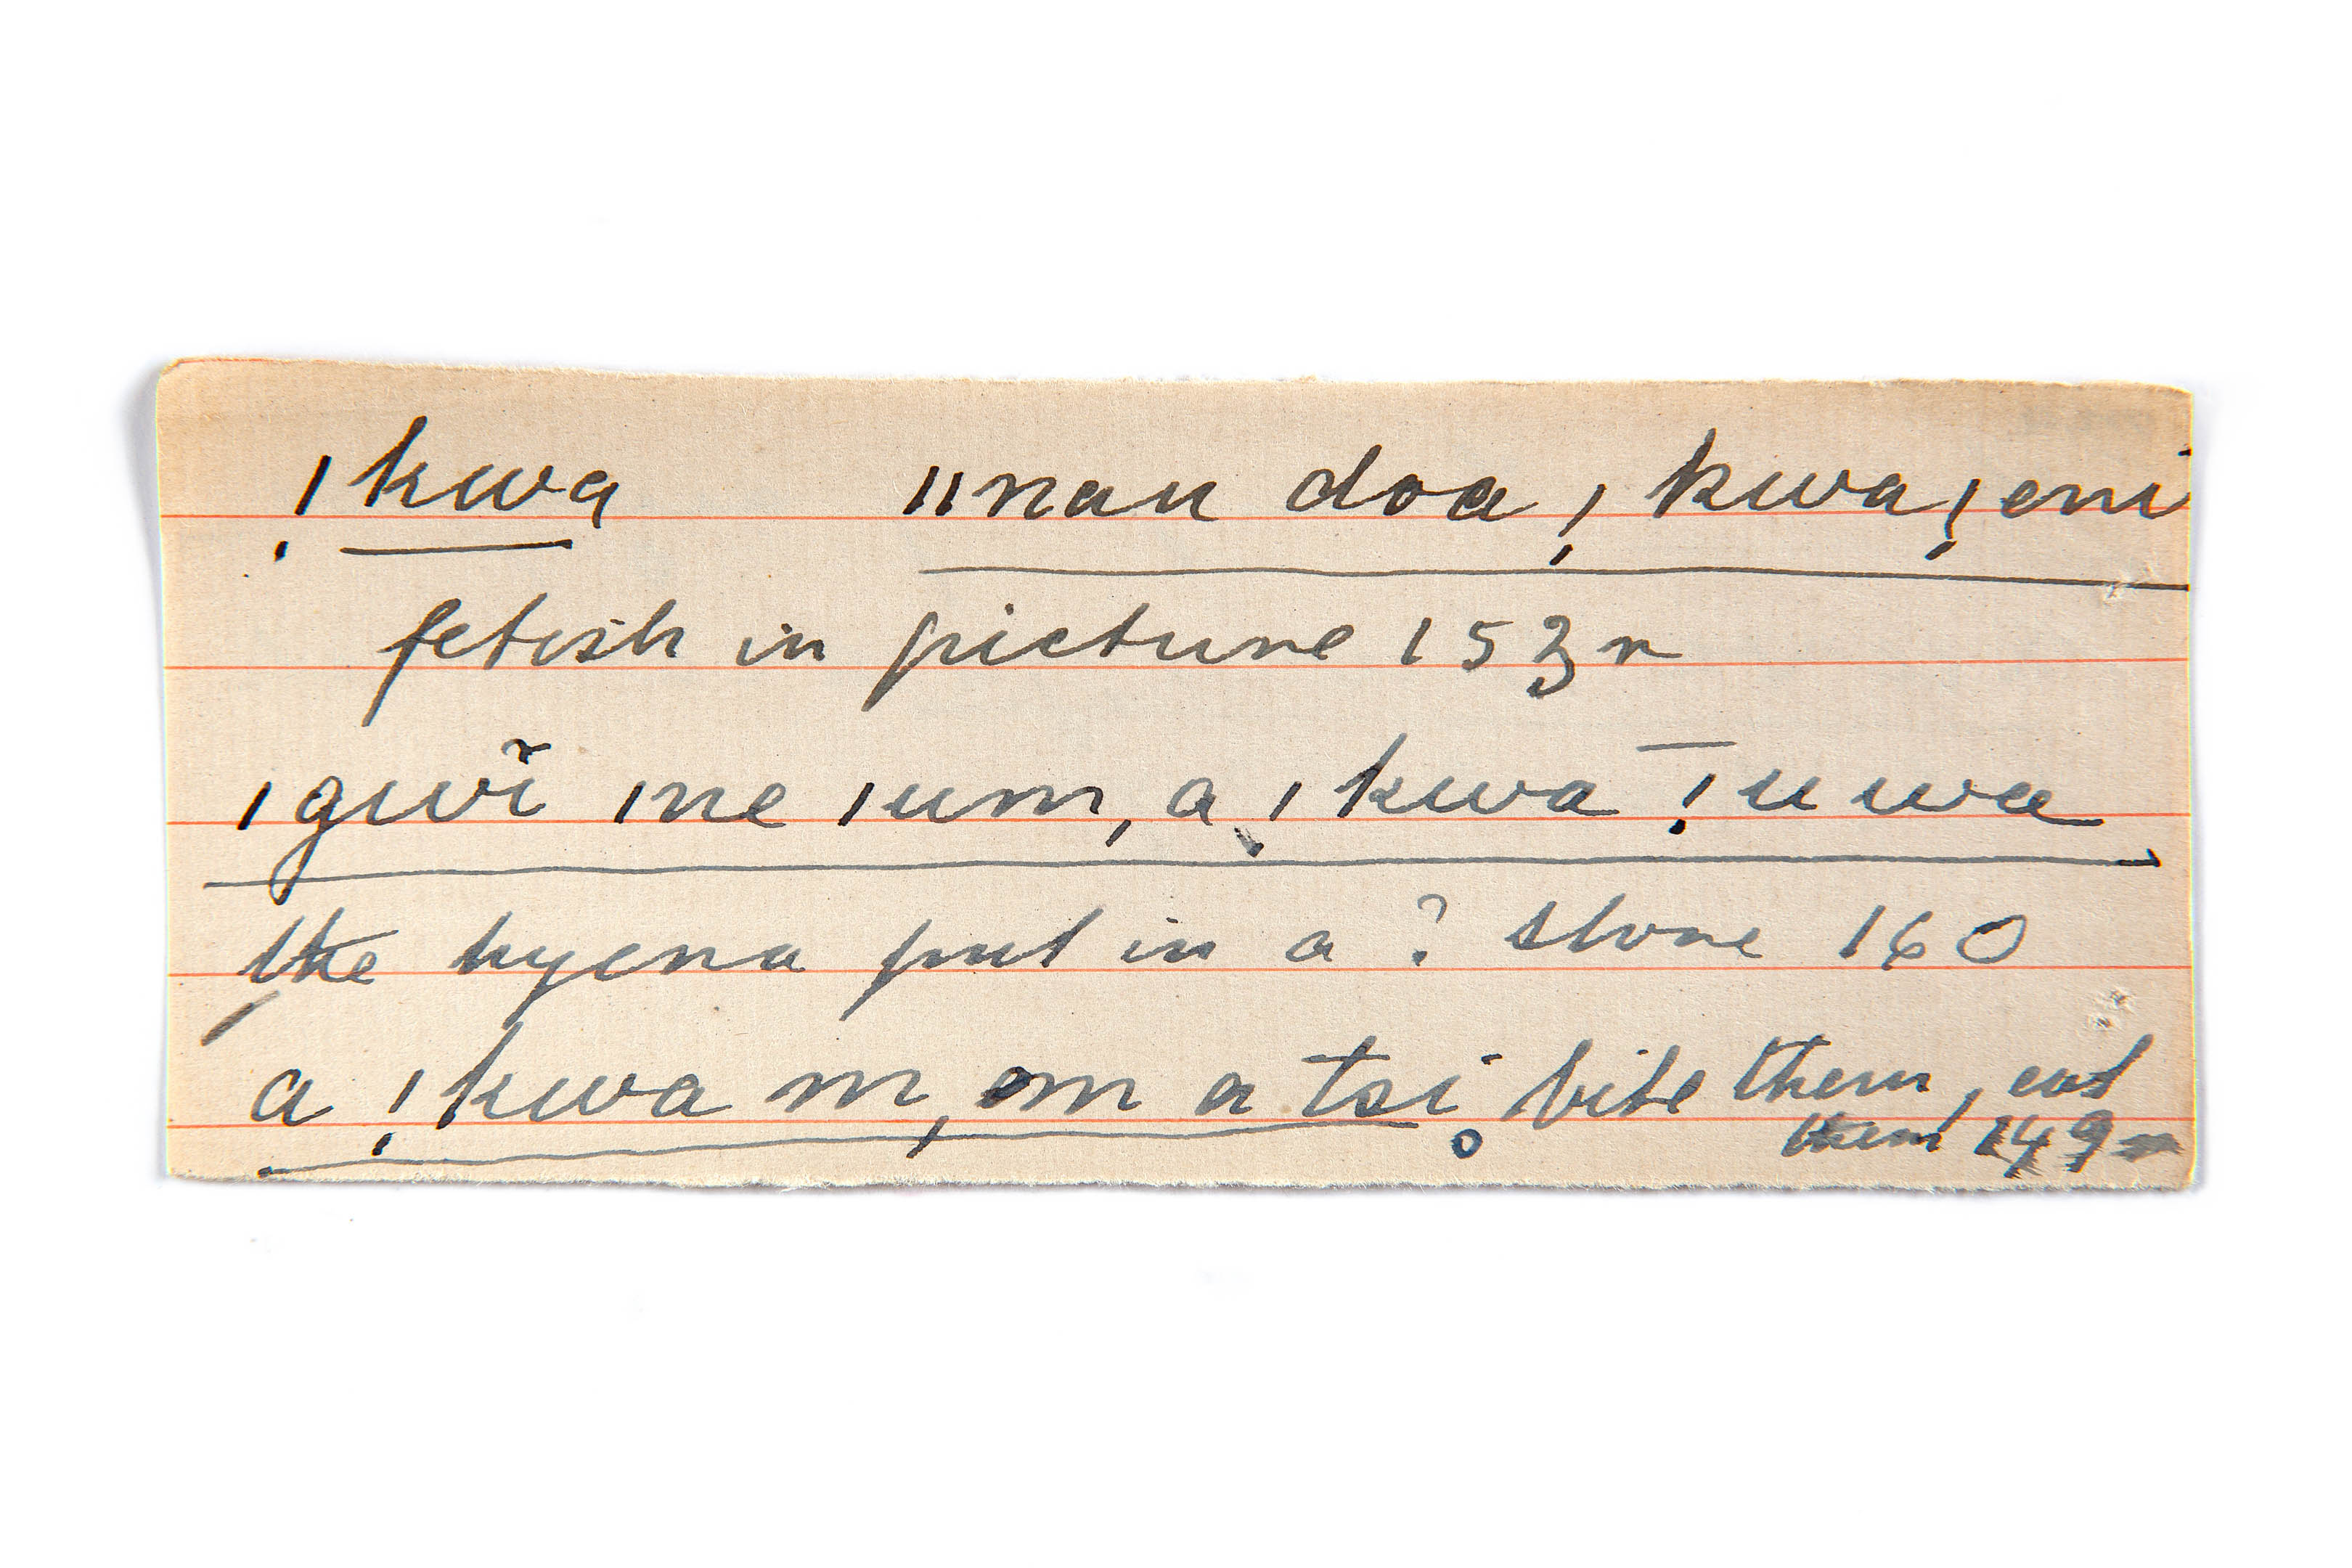 !kwa ǁnau doa !kwa !eni
fetish in picture 153r
ǀgwĩ ǀne ǀum, a !kwa !̄uwa
the hyena put in a ? stone 160
a !kwa m, om a tsi̥ bite them, eat
them 149r